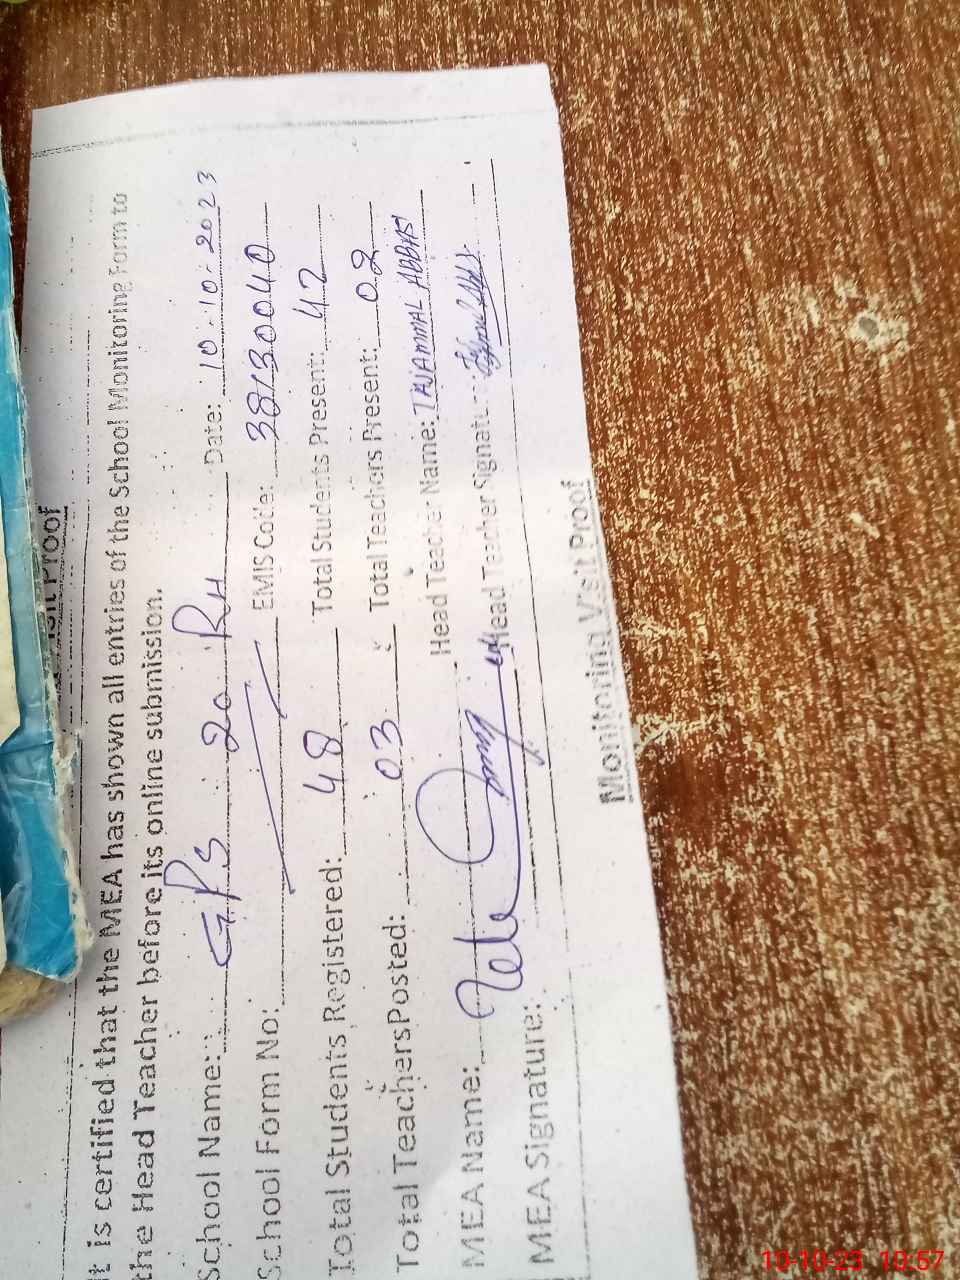 isit Proof
It is certified that the MEA has shown all entries of the School Monitoring Form to
the Head Teacher before its online submission.
School Name: GPS 20 RH Date: 10-10-2023
School Form No: EMIS Code: 38130040
Total Students Registered: 48 Total Students Present: 42
Total Teachers Posted: 03 Total Teachers Present: 02
MEA Name: Head Teacher Name: TAJAMMAL ABBAS
MEA Signature: Head Teacher Signature:
Monitoring Visit Proof
10-10-23 10:57